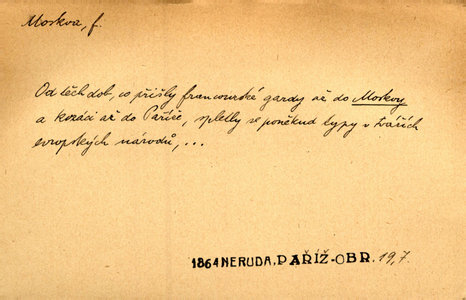 Moskva, f.
Od těch dob, co přišly francouzské gardy až do Moskvy
a kozáci až do Paříže, spletly se poněkud typy v tvářích
evropských národů, ...
1864 NERUDA, PAŘÍŽ-OBR. 19,7.